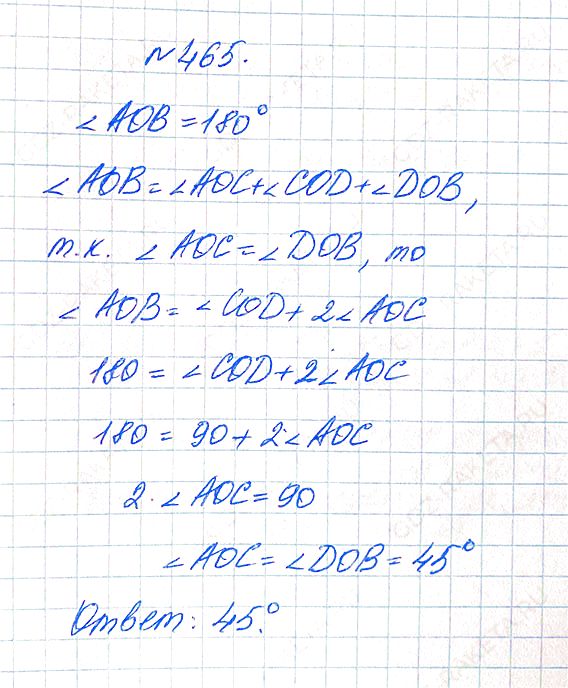 №465.
∠AOB = 180°
∠AOB = ∠AOC + ∠COD + ∠DOB,
т.к. ∠AOC = ∠DOB, то
∠AOB = ∠COD + 2∠AOC
180 = ∠COD + 2·∠AOC
180 = 90 + 2·∠AOC
2·∠AOC = 90
∠AOC = ∠DOB = 45°
Ответ: 45°.